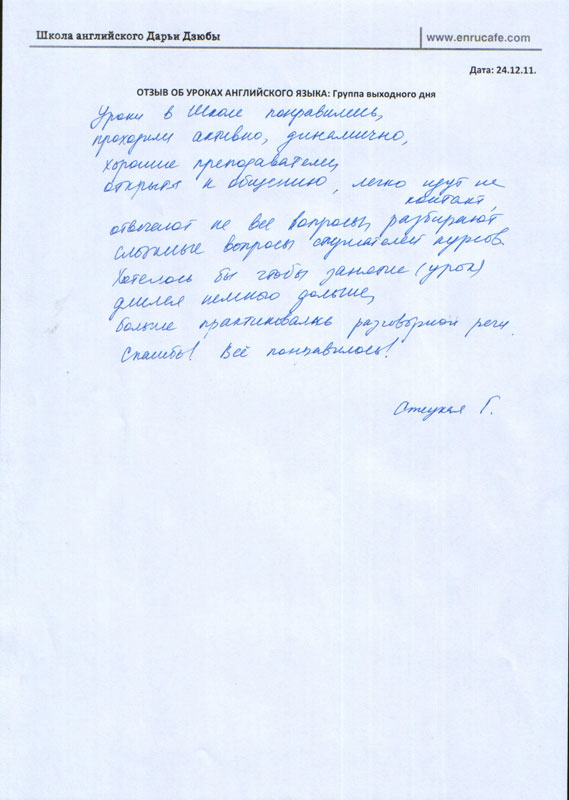 Школа английского Дарьи Дзюбы
www.enrucafe.com
Дата: 24.12.11.
ОТЗЫВ ОБ УРОКАХ АНГЛИЙСКОГО ЯЗЫКА: Группа выходного дня
Уроки в Школе понравились,
проходили активно, динамично,
хорошие преподаватели,
открыты к общению, легко идут на
контакт,
отвечают на все вопросы, разбирают
сложные вопросы слушателей курсов.
Хотелось бы чтобы занятие (урок)
длился немного дольше,
больше практиковались разговорной речи.
Спасибо! Всё понравилось!
Г.